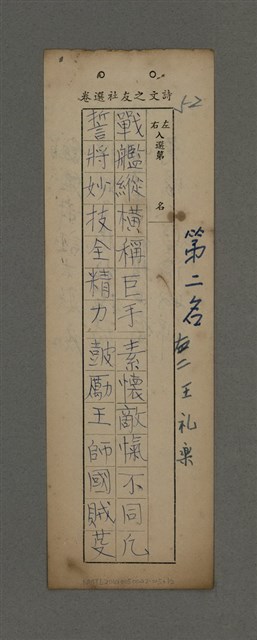 詩文之友社選卷
52
左右入選第 名
第二名
右二 王礼樂
戰艦縱橫稱巨手 素懷敵愾不同凡
誓將妙技全精力 鼓勵王師國賊芟